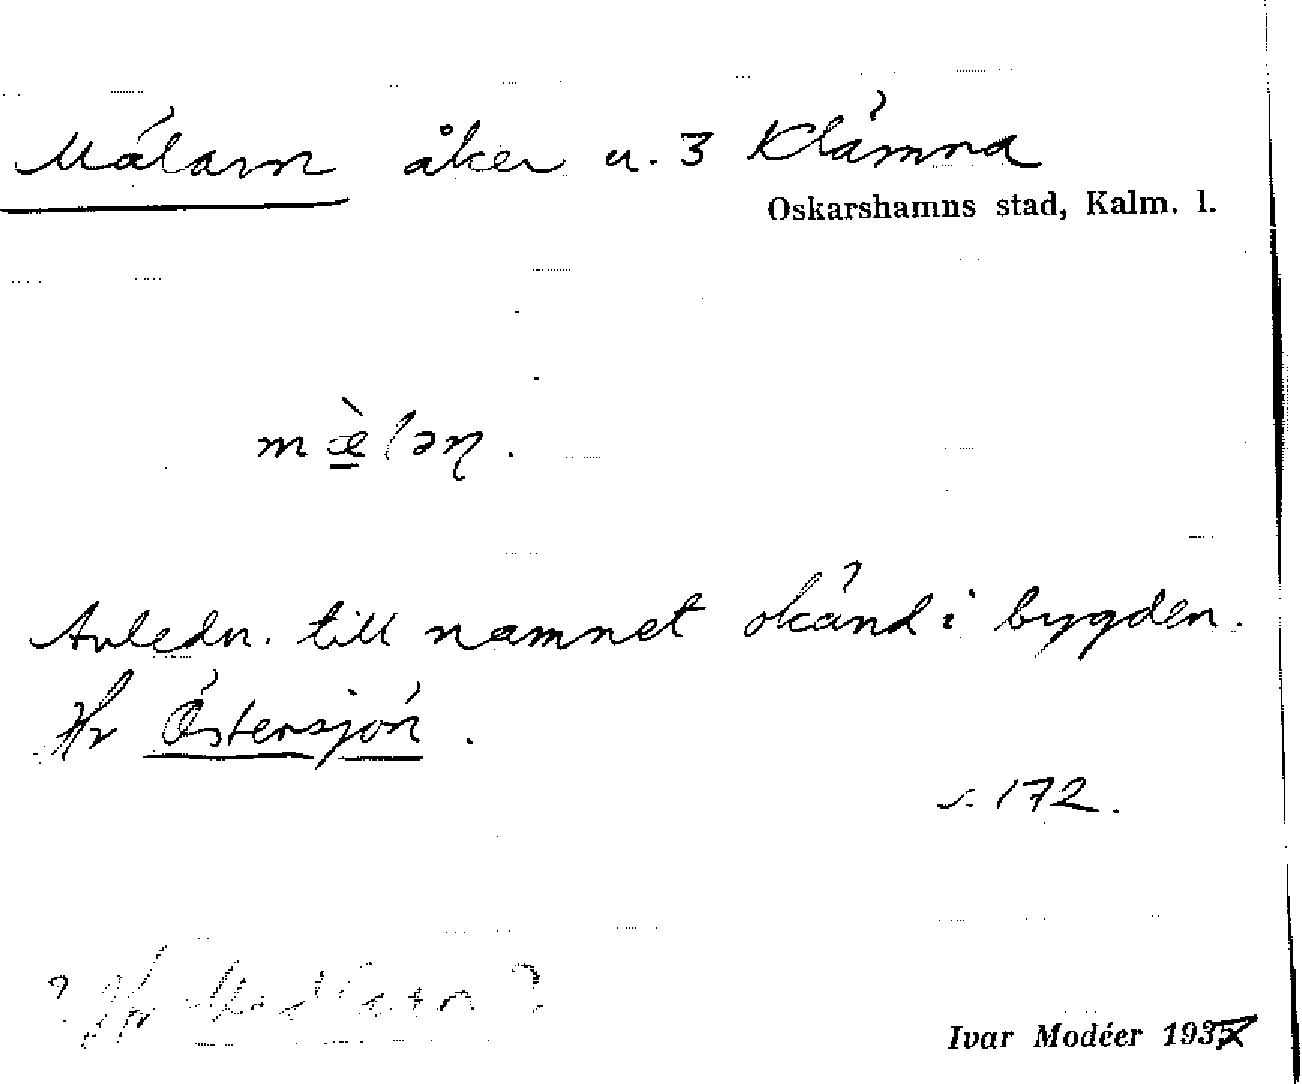 Mälarn åker u. 3 Klämna
Oskarshamns stad, Kalm. l.
mæ̲̀lən.
Avledn. till namnet okänd i bygden.
Jfr Östersjön.
s. 172.
? Jfr
Ivar Modéer 193